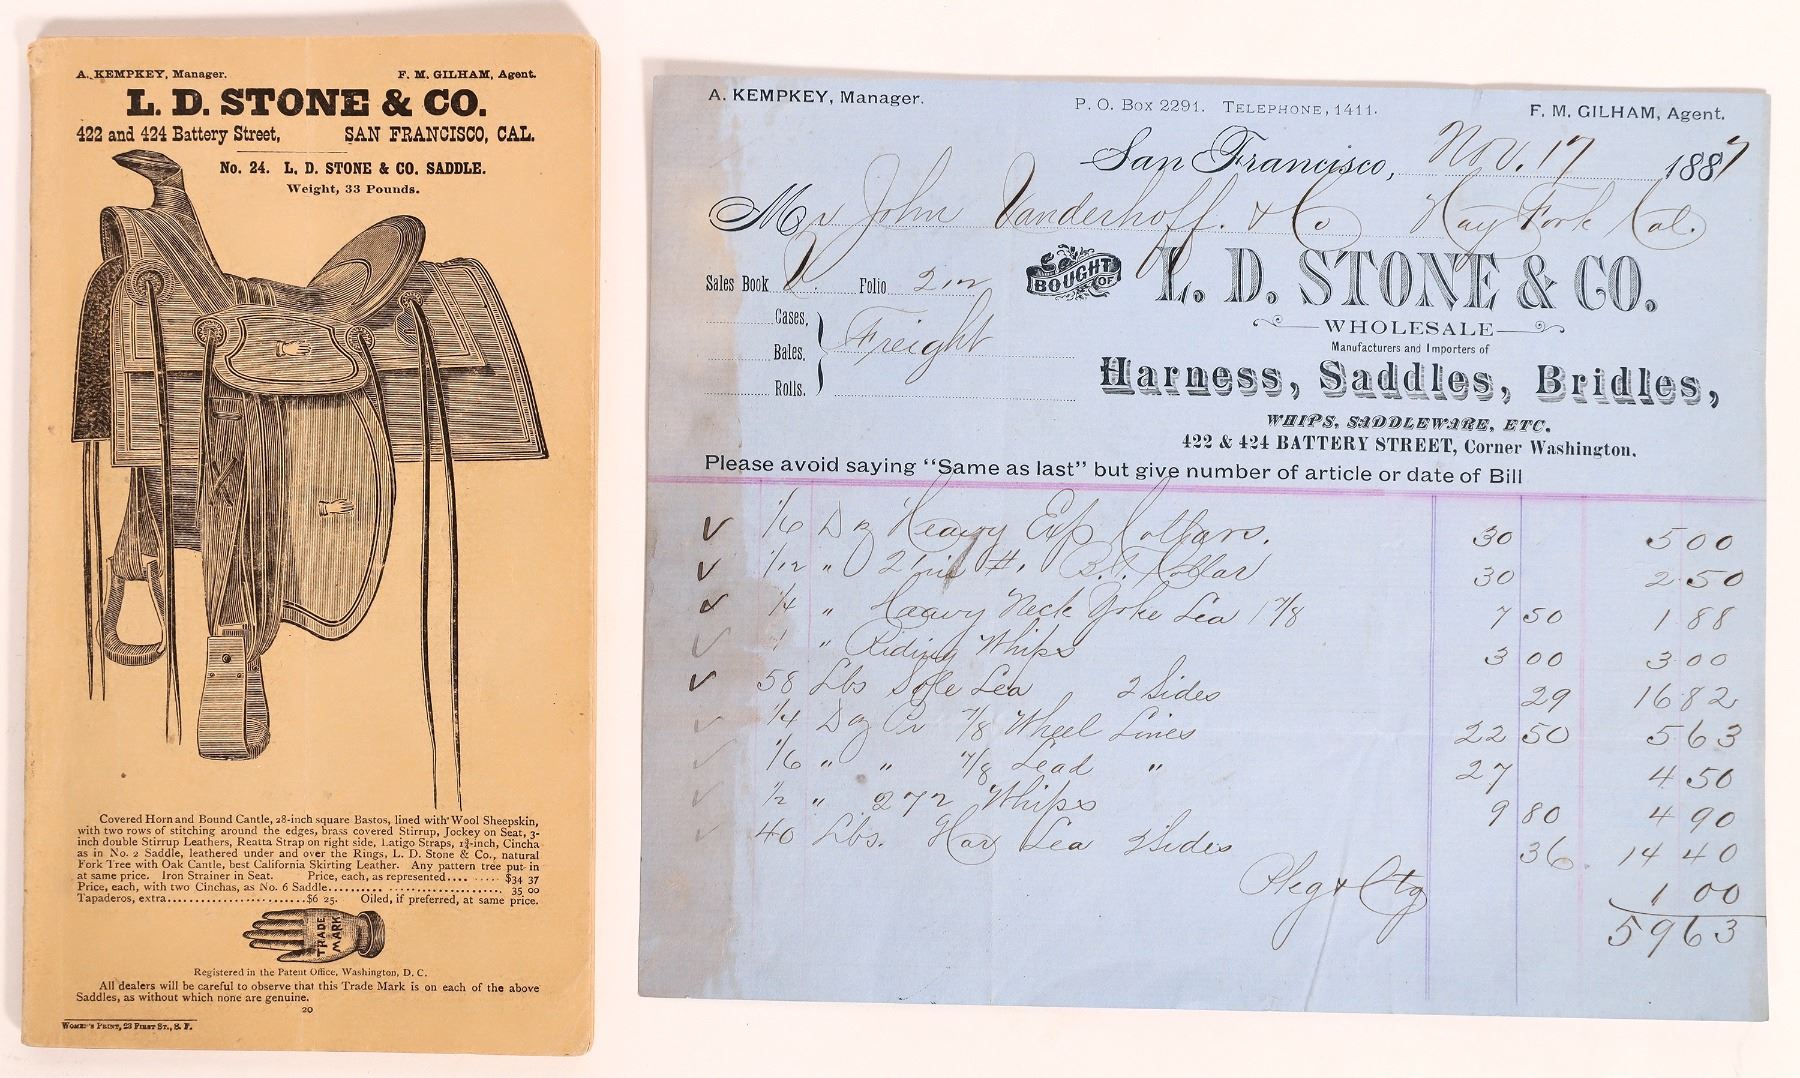 A. KEMPKEY, Manager. F. M. GILHAM, Agent.
L. D. STONE & CO.
422 and 424 Battery Street, SAN FRANCISCO, CAL.
No. 24. L. D. STONE & CO. SADDLE.
Weight, 33 Pounds.
Covered Horn and Bound Cantle, 28-inch square Bastos, lined with Wool Sheepskin,
with two rows of stitching around the edges, brass covered Stirrup, Jockey on Seat, 3-
inch double Stirrup Leathers, Reatta Strap on right side, Latigo Straps, 1¾-inch, Cincha
as in No. 2 Saddle, leathered under and over the Rings, L. D. Stone & Co., natural
Fork Tree with Oak Cantle, best California Skirting Leather. Any pattern tree put in
at same price. Iron Strainer in Seat. Price, each, as represented.... $34 37
Price, each, with two Cinchas, as No. 6 Saddle.......... 35 00
Tapaderos, extra..........$6 25. Oiled, if preferred, at same price.
TRADE MARK
Registered in the Patent Office, Washington, D. C.
All dealers will be careful to observe that this Trade Mark is on each of the above
Saddles, as without which none are genuine.
20
WOMEN'S PRINT, 23 FIRST ST., S. F.
A. KEMPKEY, Manager. P. O. Box 2291. TELEPHONE, 1411. F. M. GILHAM, Agent.
San Francisco, Nov. 17 1887
Mr John Vanderhoff. & Co Hay Fork Cal.
BOUGHT OF L. D. STONE & CO.
Sales Book Folio
WHOLESALE
Cases,
Bales, Freight
Rolls.
Manufacturers and Importers of
Harness, Saddles, Bridles,
WHIPS, SADDLEWARE, ETC.
422 & 424 BATTERY STREET, Corner Washington.
Please avoid saying "Same as last" but give number of article or date of Bill
1/6 Dz Heavy Exp Collars. 30 5 00
1/12 " 21 in #1 B.T. Collar 30 2 50
1/4 " Heavy Neck Yoke Lea 1 7/8 7 50 1 88
1 " Riding Whips 3 00 3 00
58 Lbs Sole Lea 2 Sides 29 16 82
1/4 Dz Pr 7/8 Wheel Lines 22 50 5 63
1/6 " " 7/8 Lead " 27 4 50
1/2 " 272 Whips 9 80 4 90
40 Lbs. Har Lea 2 Sides 36 14 40
Pkg & Ctg 1 00
59 63